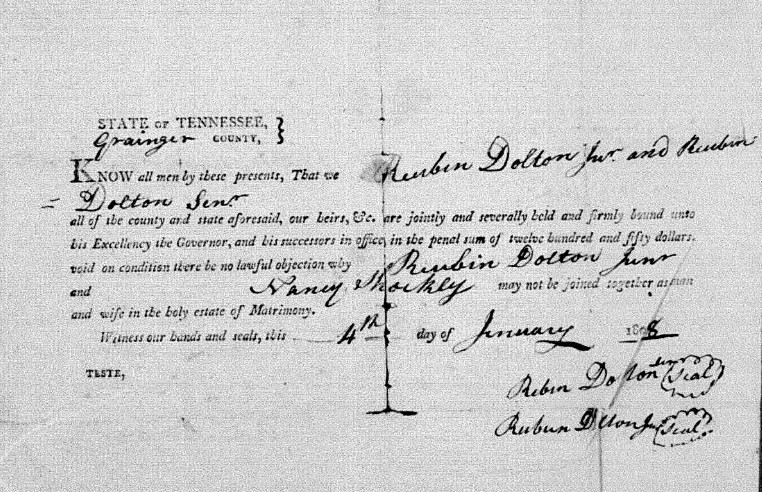 STATE OF TENNESSEE, }
Grainger COUNTY,
KNOW all men by these presents, That we Reubin Dolton Junr. and Reubin
= Dolton Senr
all of the county and state aforesaid, our heirs, &c. are jointly and severally held and firmly bound unto
his Excellency the Governor, and his successors in office, in the penal sum of twelve hundred and fifty dollars.
void on condition there be no lawful objection why Reubin Dolton Junr
and Nancy Shockly may not be joined together as man
and wife in the holy estate of Matrimony.
Witness our hands and seals, this 4th day of Jenuary 1808
TESTE,
Rebin Dolton Senr (Seal)
Reubun Dlton Jur (Seal)